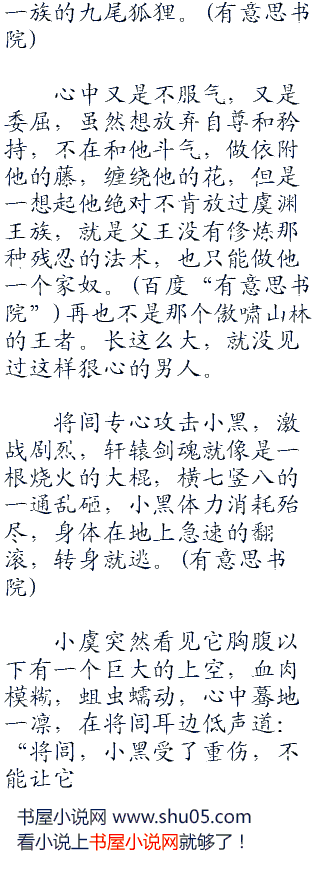 一族的九尾狐狸。(有意思书
院)
心中又是不服气，又是
委屈，虽然想放弃自尊和矜
持，不在和他斗气，做依附
他的藤，缠绕他的花，但是
一想起他绝对不肯放过虞渊
王族，就是父王没有修炼那
种残忍的法术，也只能做他
一个家奴。(百度“有意思书
院”)再也不是那个傲啸山林
的王者。长这么大，就没见
过这样狠心的男人。
将闾专心攻击小黑，激
战剧烈，轩辕剑魂就像是一
根烧火的大棍，横七竖八的
一通乱砸，小黑体力消耗殆
尽，身体在地上急速的翻
滚，转身就逃。(有意思书
院)
小虞突然看见它胸腹以
下有一个巨大的上空，血肉
模糊，蛆虫蠕动，心中蓦地
一凛，在将闾耳边低声道：
“将闾，小黑受了重伤，不
能让它
书屋小说网 www.shu05.com
看小说上书屋小说网就够了！